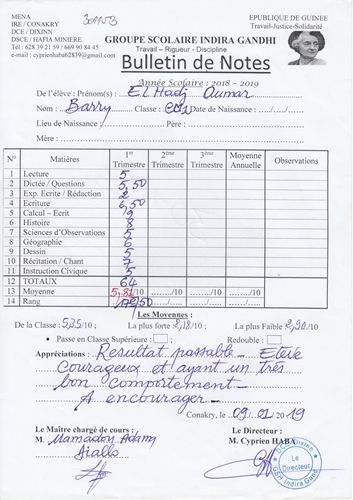 MENA
IRE / CONAKRY
DCE / DIXINN
DSCE / HAFIA MINIERE
Tél : 628 39 21 59 / 669 90 84 45
e-mail : cyprienhaba62839@gmail.com
EPUBLIQUE DE GUINEE
Travail-Justice-Solidarité
GROUPE SCOLAIRE INDIRA GANDHI
Travail – Rigueur - Discipline
Bulletin de Notes
Année Scolaire : 2018 - 2019
De l'élève : Prénom(s) : El Hadj Oumar
Nom : Barry Classe : Date de Naissance : ...../...../......
Lieu de Naissance : Père :
Mère :
N° Matières 1er Trimestre 2ème Trimestre 3ème Trimestre Moyenne Annuelle Observations
1 Lecture 5
2 Dictée / Questions 5,50
3 Exp. Ecrite / Rédaction 2
4 Ecriture 6,50
5 Calcul – Ecrit 9
6 Histoire 8
7 Sciences d'Observations 5
8 Géographie 6
9 Dessin 5
10 Récitation / Chant 7
11 Instruction Civique 5
12 TOTAUX 64
13 Moyenne 5,81/10 ......../10 ......../10 ......../10
14 Rang /50 ......../...... ......../...... ......../......
Les Moyennes :
De la Classe : 5,35/10 ; La plus forte : /10 ; La plus Faible 2,90/10
• Passe en Classe Supérieure : Redouble :
Appréciations : Resultat passable – Elève
Courageux et ayant un très
bon comportement –
A encourager –
Conakry, le 09/02/2019
Le Maître chargé de cours : Le Directeur :
M. Mamadou Adama M. Cyprien HABA
Diallo
DCE Dixinn
Le Directeur
GSP Indira Gand